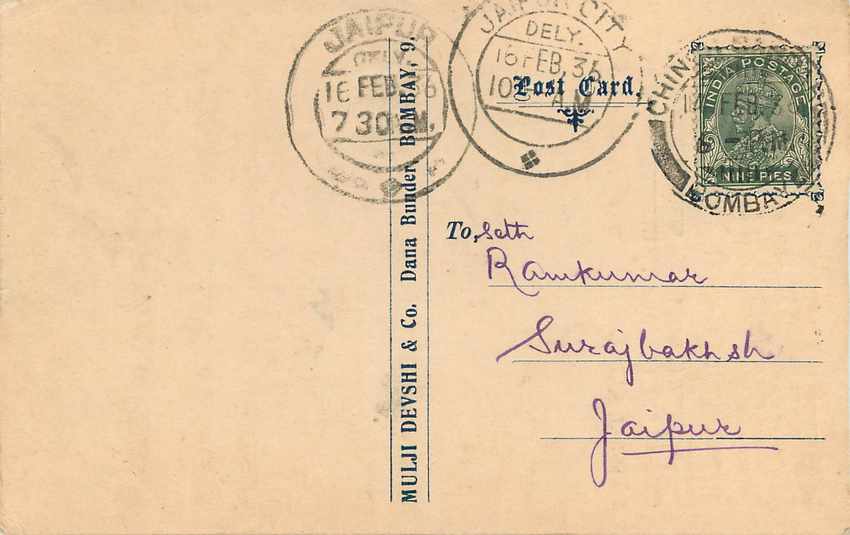 JAIPUR
DELY.
16 FEB. 36
7 30 M.
JAIPUR CITY
DELY.
16 FEB. 36
10 A.M
Post Card.
INDIA POSTAGE
NINE PIES
FEB.
BOMBAY
MULJI DEVSHI & Co. Dana Bunder BOMBAY, 9.
To, Seth
Ramkumar
Surajbakhsh
Jaipur